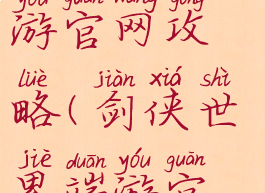 yóu guān wǎng gōng
游官网攻
lüè jiàn xiá shì
略(剑侠世
jiè duān yóu guān
界端游官